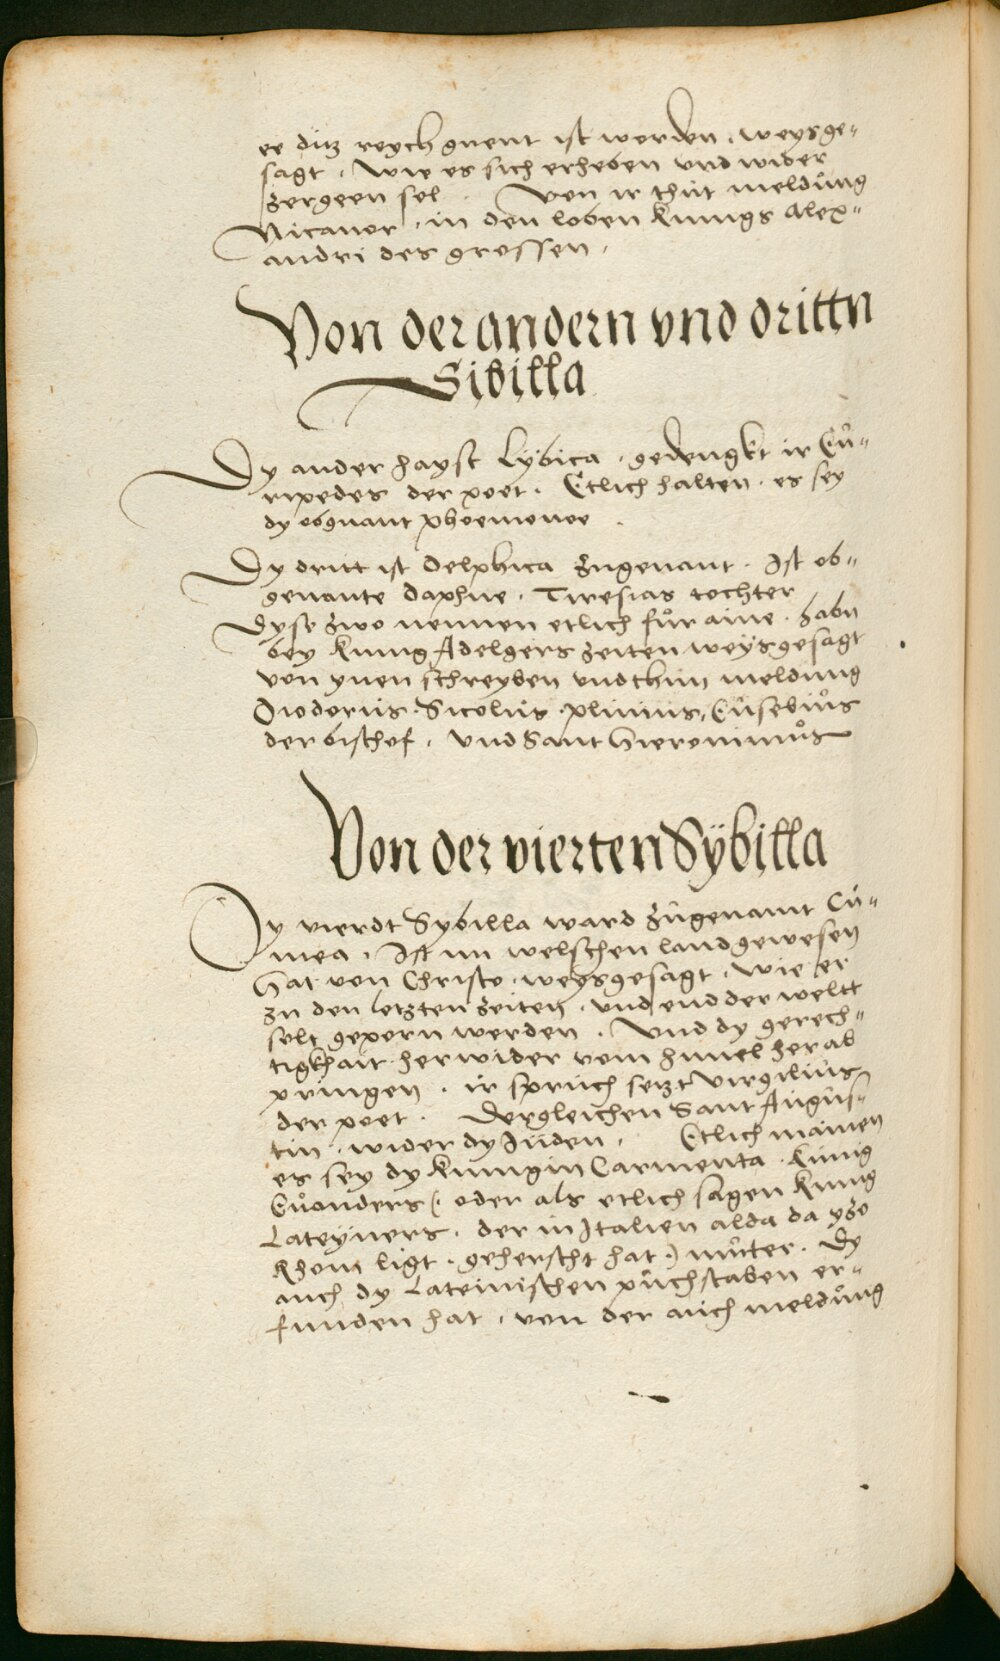 ee ditz reych gnent ist worden . weysge-
sagt . Wie es sich erheben vnd wider
zergeen sol . Von ir thut meldůng
Nicanor . in den loben kunigs Alex-
andri des grossen .
Von der andern vnd drittn
Sibilla
Dy ander hayst Lybica . gedengkt ir Eů-
ripedes der poet . Etlich halten . es sey
dy obgnant phoemonoe .
Dy dritt ist Delphica zugenant . Ist ob-
genante daphne . Tiresias tochter
Dyse zwo nennen etlich fůr aine . habn
bey kunig Adelgers zeiten weysgesagt
von ynen schreyben vnd thun meldung
Diodorus . Sicolus . plinius , Eůsebiůs
der bischof . vnd Sant hieronimůs
Von der vierten Sÿbilla
Dy vierdt Sybilla ward zůgenamt Ců-
mea . Ist im welschen land gewesen
hat von Christo . weysgesagt . Wie er
zu den letzten zeiten . vnd end der weltt
solt geporn werden . Vnd dy gerech-
tigkhait . herwider vom himel herab
pringen . ir spruch setzt Virgilius
der poet . Dergleichen Sant Augůs-
tin . wider dy Juden . Etlich mainen
es sey dy kunigin Carmenta . kunig
Eůanders (: oder als etlich sagen kunig
Lateyners . der in Italien alda da yzo
Rhom ligt . geherscht hat :) můter . Dy
auch dy Lateinischen půchstaben er-
funden hat . von der auch meldůng